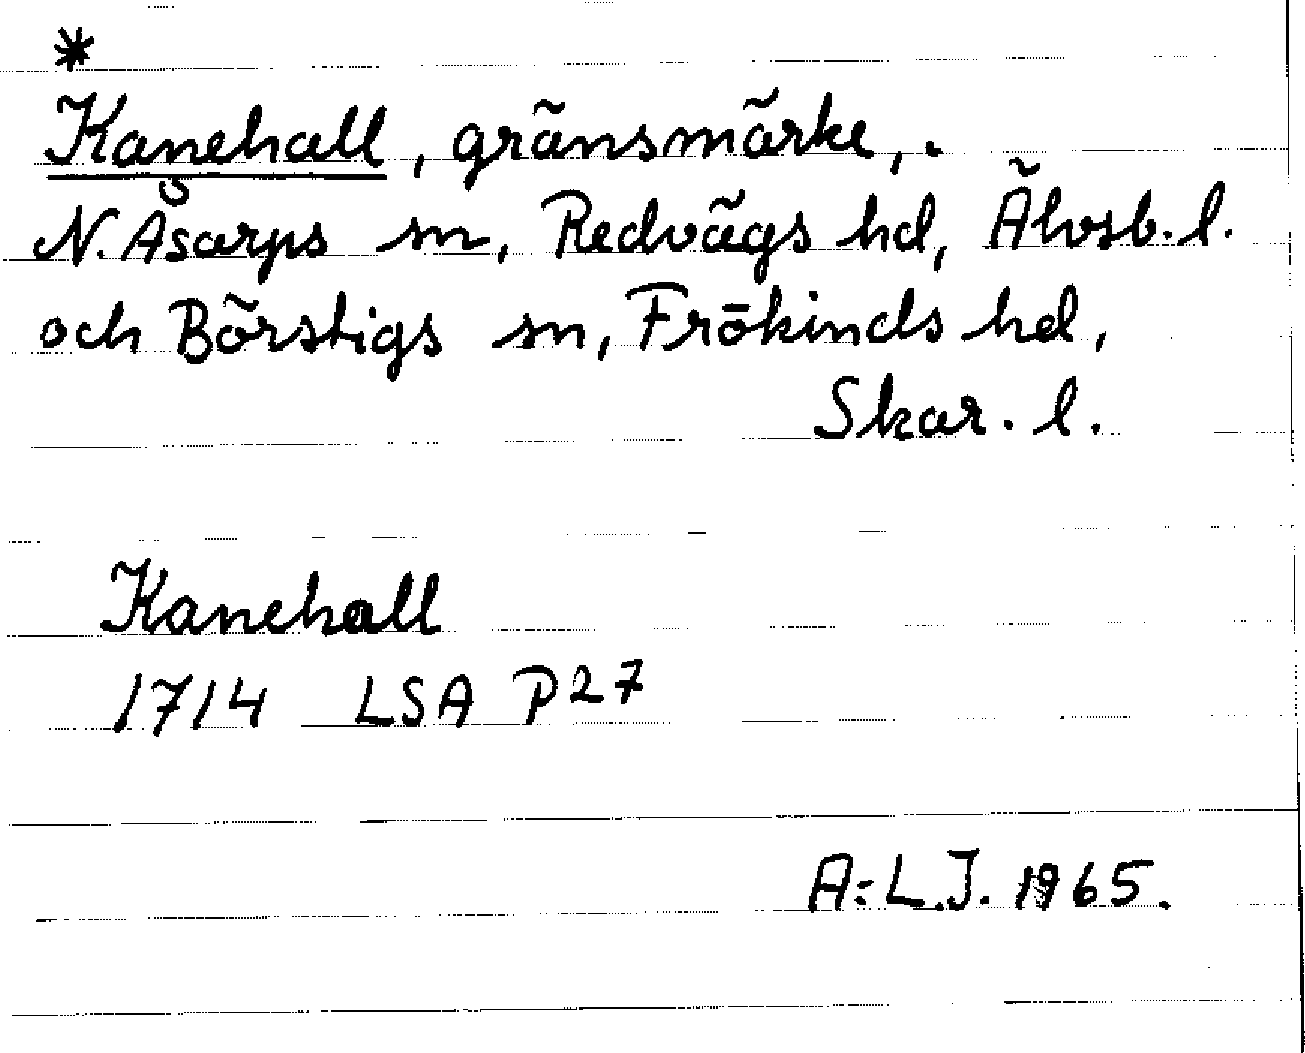 *
Kanehall, gränsmärke,.
N. Åsarps sn, Redvägs hd, Älvsb. l.
och Börstigs sn, Frökinds hd,
Skar. l.
Kanehall
1714 LSA P27
A:L.J. 1965.